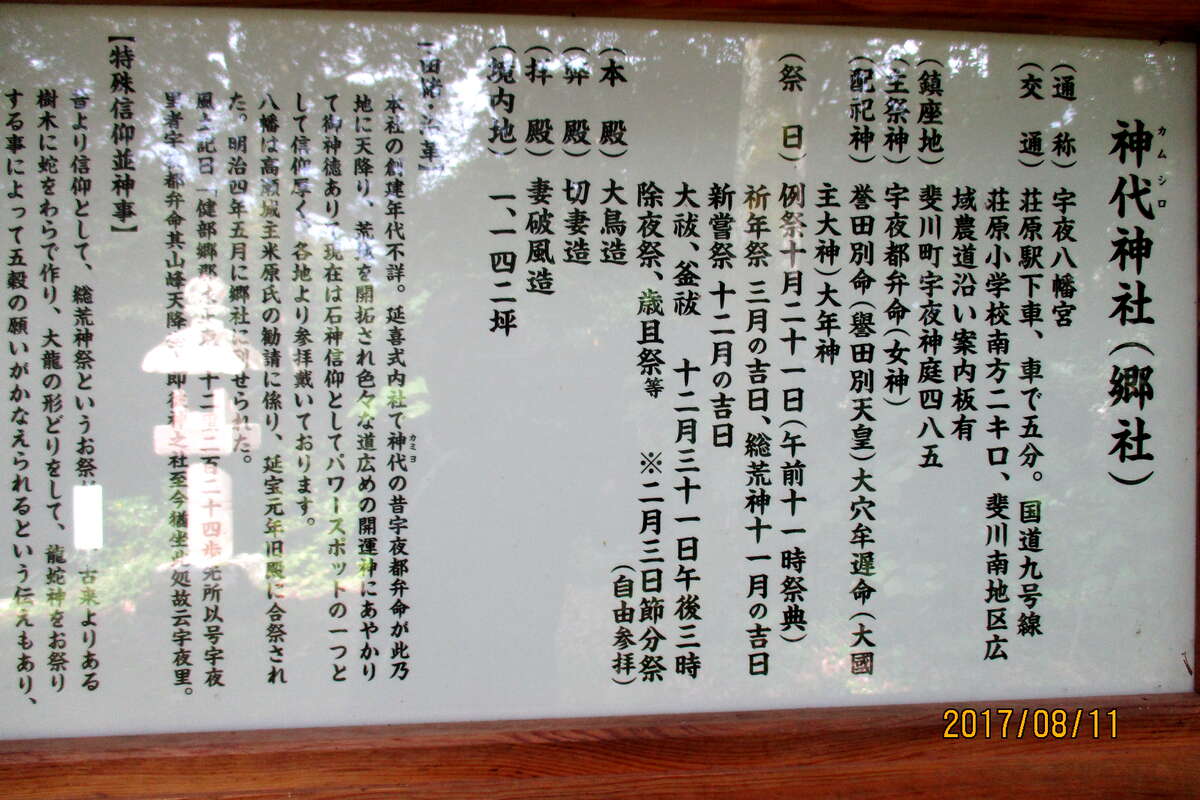 神代神社(郷社)
カムシロ
(通　称)宇夜八幡宮
(交　通)荘原駅下車、車で五分。国道九号線
荘原小学校南方二キロ、斐川南地区広
域農道沿い案内板有
(鎮座地)斐川町宇夜神庭四八五
(主祭神)宇夜都弁命(女神)
(配祀神)誉田別命(譽田別天皇)大穴牟遅命(大國
主大神)大年神
(祭　日)例祭十月二十一日(午前十一時祭典)
祈年祭 三月の吉日、総荒神十一月の吉日
新嘗祭 十二月の吉日
大祓、釜祓　十二月三十一日午後三時
除夜祭、歳旦祭等　※二月三日節分祭
(自由参拝)
(本　殿)大鳥造
(弊　殿)切妻造
(拝　殿)妻破風造
(境内地)一、一四二坪
本社の創建年代不詳。延喜式内社で神代の昔宇夜都弁命が此乃
カミヨ
地に天降り、荒地を開拓され色々な道広めの開運神にあやかり
て御神徳あり、現在は石神信仰としてパワースポットの一つと
して信仰厚く、各地より参拝戴いております。
八幡は高瀬城主米原氏の勧請に係り、延宝元年旧殿に合祭され
た。明治四年五月に郷社に列せられた。
風土記曰「健部郷郡 十二 二百二十四歩 元所以号宇夜
里者宇 都弁命其山峰天降 即彼神之社至今猶坐此処故云宇夜里。
【特殊信仰並神事】
昔より信仰として、総荒神祭というお祭 古来よりある
樹木に蛇をわらで作り、大龍の形どりをして、龍蛇神をお祭り
する事によって五穀の願いがかなえられるという伝えもあり、
2017/08/11